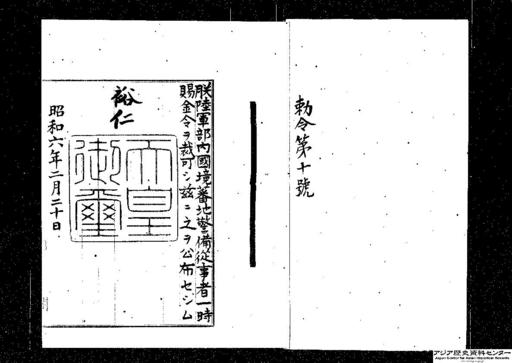 勅令第十號
朕陸軍部内國境蕃地警備從事者一時
賜金令ヲ裁可シ茲ニ之ヲ公布セシム
裕仁
天皇
御璽
昭和六年二月二十日
アジア歴史資料センター
Japan Center for Asian Historical Records